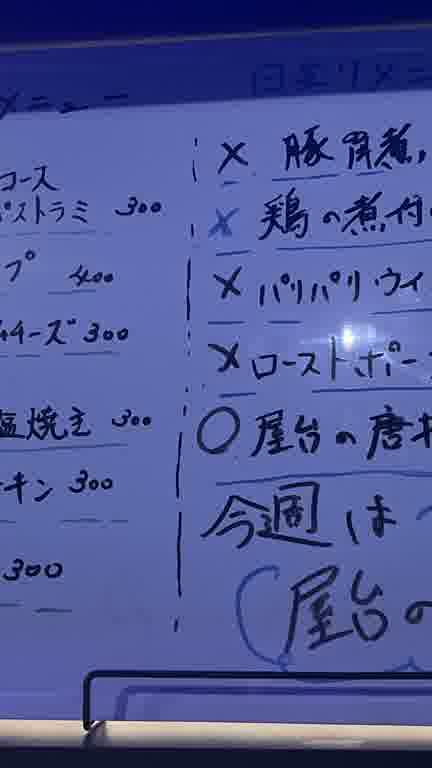 メニュー
日替りメニ
コース
パストラミ 300
プ 400
ムチーズ 300
塩焼き 300
キン 300
300
× 豚胃煮
× 鶏の煮付
× パリパリウイ
× ローストポー
○ 屋台の唐
今週は
屋台の